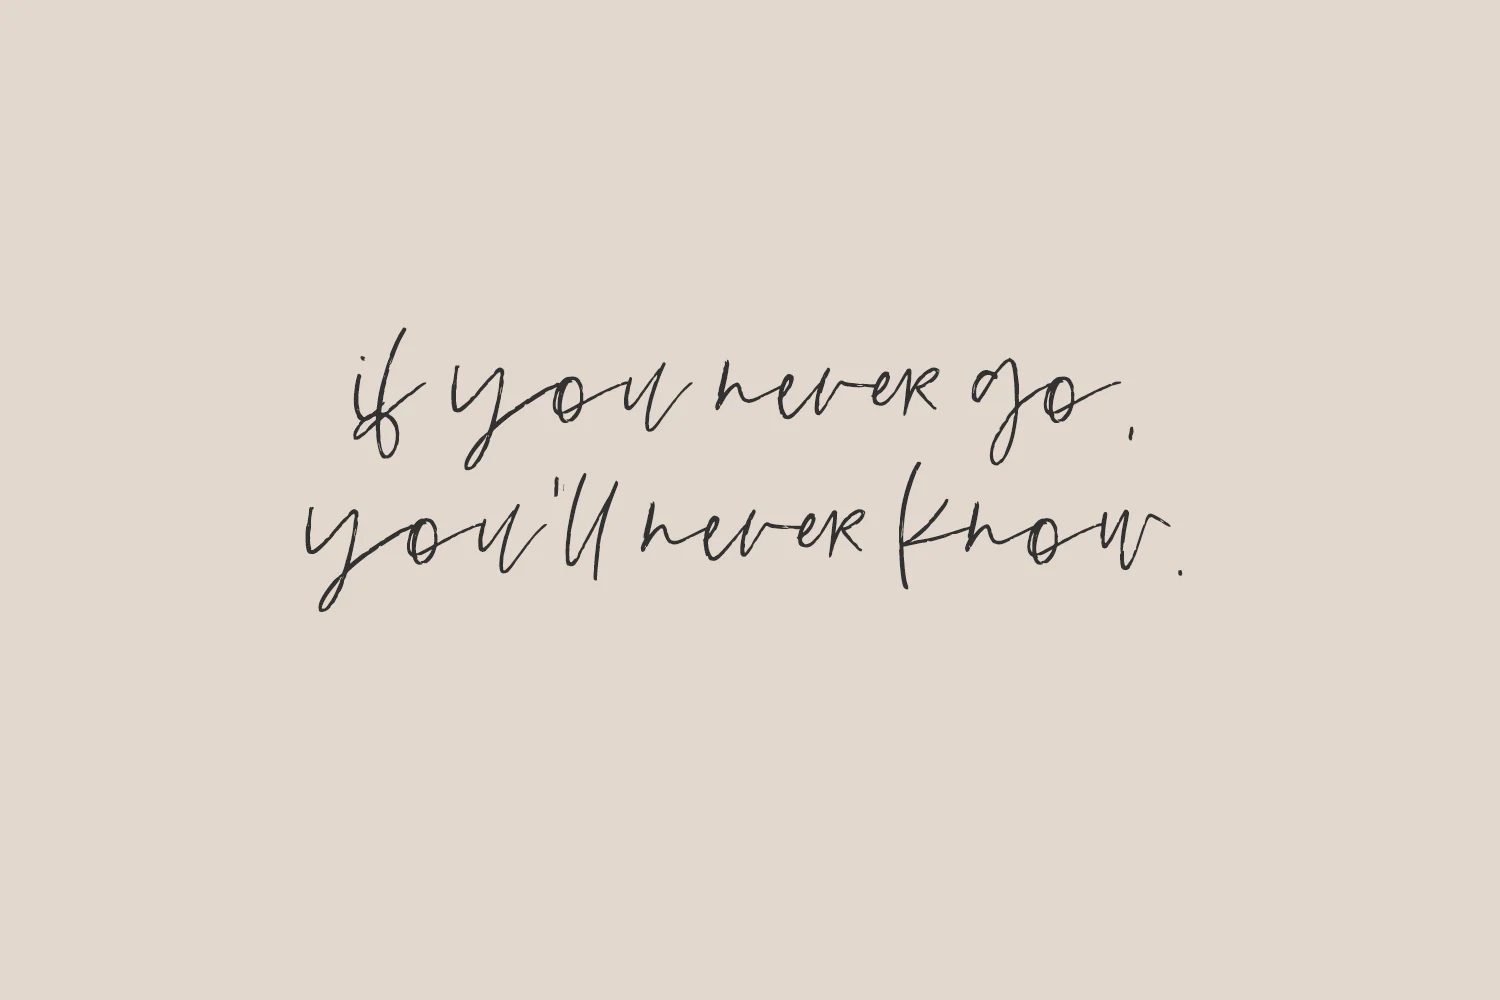 if you never go,
you'll never know.